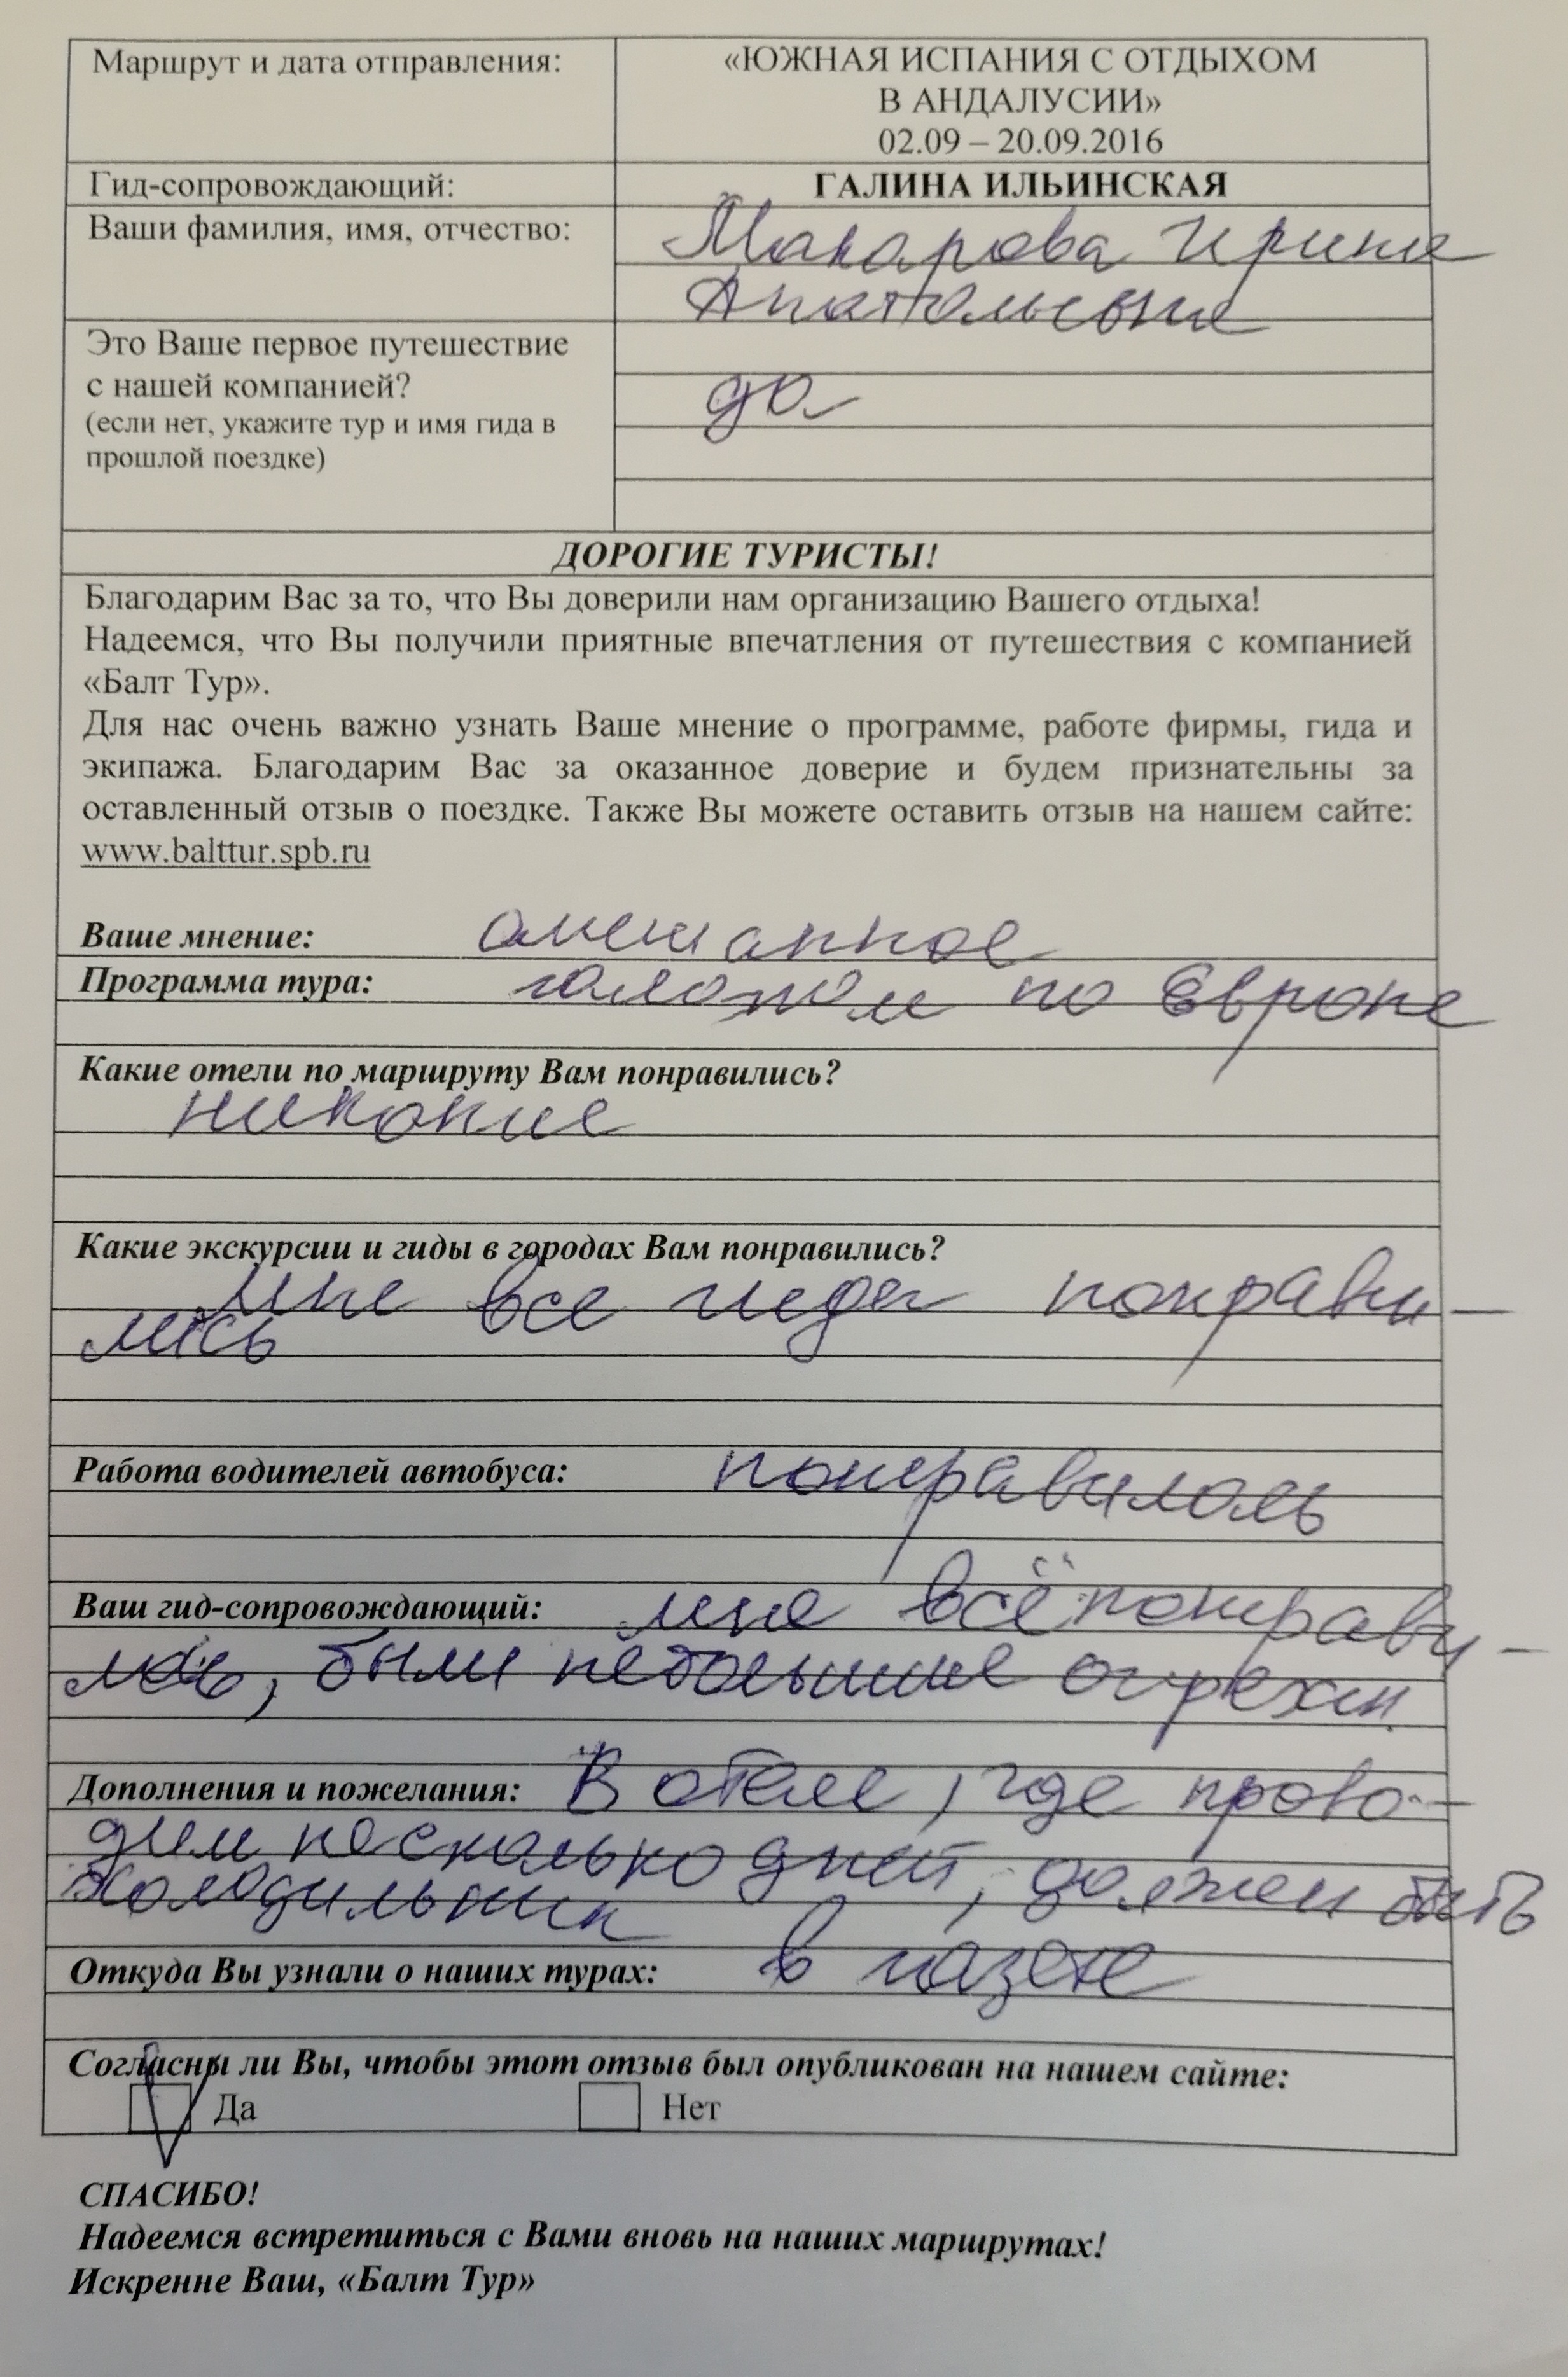 Маршрут и дата отправления:
«ЮЖНАЯ ИСПАНИЯ С ОТДЫХОМ
В АНДАЛУСИИ»
02.09 – 20.09.2016
Гид-сопровождающий:
ГАЛИНА ИЛЬИНСКАЯ
Ваши фамилия, имя, отчество:
Макарова Ирина
Анатольевна
Это Ваше первое путешествие
с нашей компанией?
(если нет, укажите тур и имя гида в
прошлой поездке)
да
ДОРОГИЕ ТУРИСТЫ!
Благодарим Вас за то, что Вы доверили нам организацию Вашего отдыха!
Надеемся, что Вы получили приятные впечатления от путешествия с компанией
«Балт Тур».
Для нас очень важно узнать Ваше мнение о программе, работе фирмы, гида и
экипажа. Благодарим Вас за оказанное доверие и будем признательны за
оставленный отзыв о поездке. Также Вы можете оставить отзыв на нашем сайте:
www.balttur.spb.ru
Ваше мнение: смешанное
Программа тура: галопом по Европе
Какие отели по маршруту Вам понравились?
никакие
Какие экскурсии и гиды в городах Вам понравились?
мне все гиды понрави-
лись
Работа водителей автобуса: понравилась
Ваш гид-сопровождающий: мне всё понрави-
лось, были небольшие огрехи
Дополнения и пожелания: В отеле, где прово-
дим несколько дней, должен быть
холодильник
Откуда Вы узнали о наших турах: в газете
Согласны ли Вы, чтобы этот отзыв был опубликован на нашем сайте:
Да Нет
СПАСИБО!
Надеемся встретиться с Вами вновь на наших маршрутах!
Искренне Ваш, «Балт Тур»